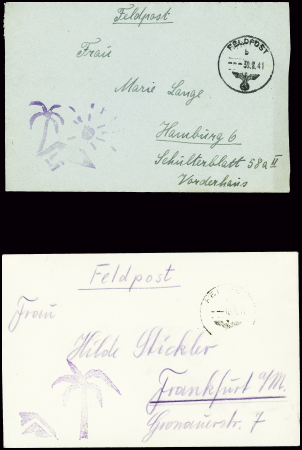 Feldpost
FELDPOST
b
---30.8.41
Frau
Marie Lange
Hamburg 6
Schulterblatt 58a II
Vorderhaus
Feldpost
Frau
Hilde Stickler
Frankfurt a/M.
Gronauerstr. 7